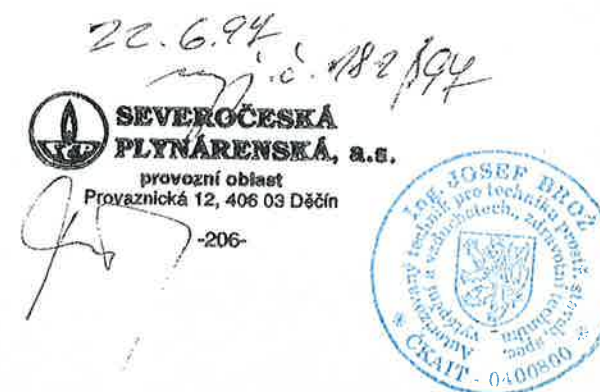 22.6.94
č. 182/94
SEVEROČESKÁ
PLYNÁRENSKÁ, a.s.
provozní oblast
Provaznická 12, 406 03 Děčín
-206-
Ing. JOSEF BROŽ
Autorizovaný technik pro techniku prostř. staveb, spec.
vytápění a vzduchotech., zdravotní technika
* ČKAIT - 0400800 *